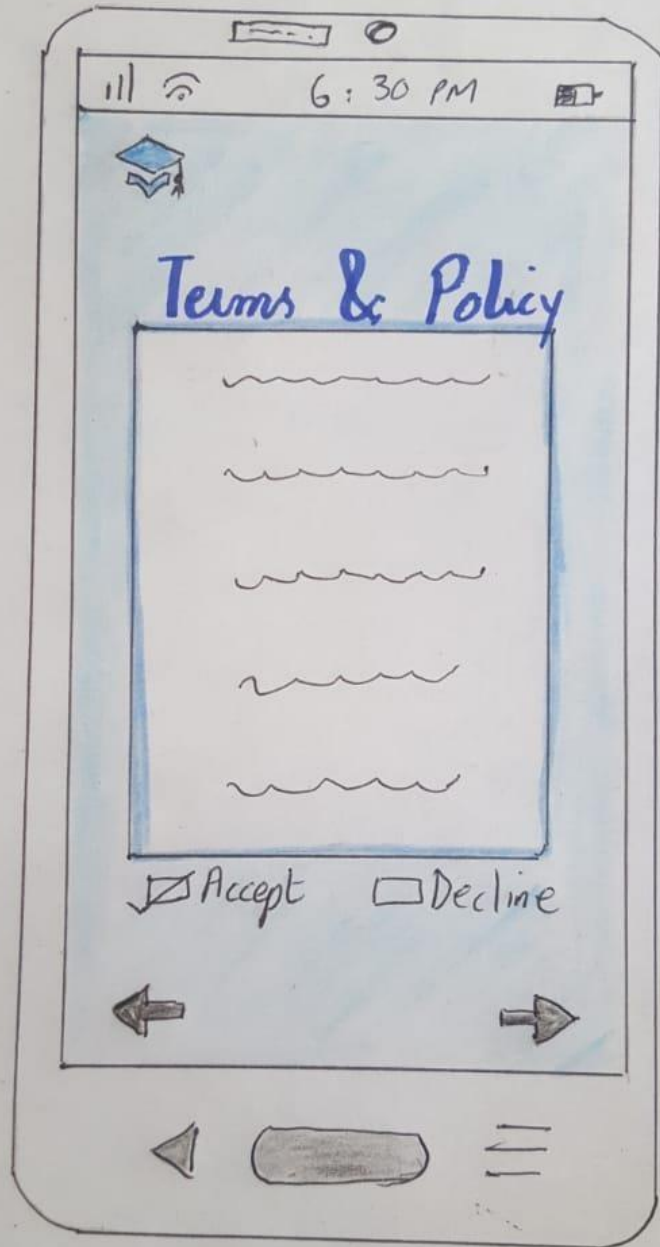 6:30 PM
Terms & Policy
Accept Decline